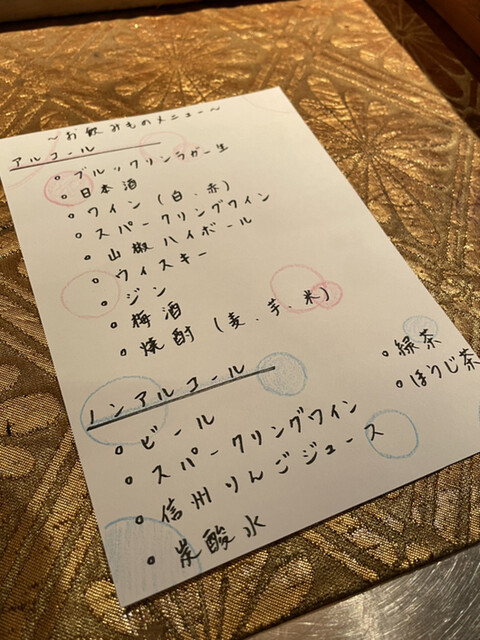 ～お飲みものメニュー～
アルコール
・ブルックリンラガー生
・日本酒
・ワイン（白・赤）
・スパークリングワイン
・山椒ハイボール
・ウィスキー
・ジン
・梅酒
・焼酎（麦．芋．米）
ノンアルコール
・ビール
・スパークリングワイン
・信州りんごジュース
・炭酸水
・緑茶
・ほうじ茶